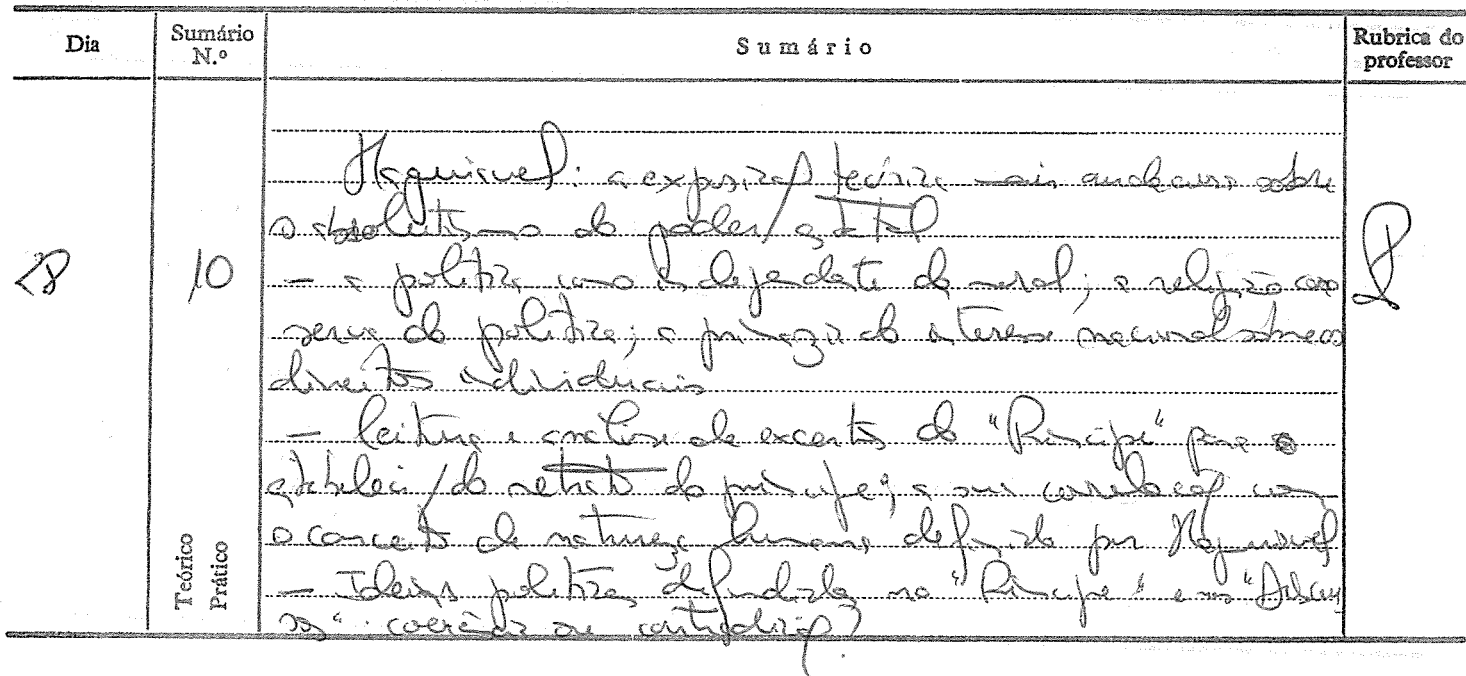 Dia
Sumário N.º
Sumário
Rubrica do professor
28
10
Teórico
Prático
Maquiavel: a exposição teórica mais audaciosa sobre
o absolutismo do poder estatal
– a política como independente da moral; a religião como
serva da política; a primazia do interesse nacional sobre os
direitos individuais
– leitura e análise de excertos do "Príncipe" para o
estabeleci/do retrato do príncipe; a sua correlação com
o conceito de natureza humana definido por Maquiavel
– Ideias políticas defendidas no "Príncipe" e nos "Discur
sos": coerência ou contradição?